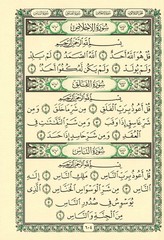 سُورَةُ الإِخْلَاصِ
بِسْمِ ٱللَّهِ ٱلرَّحْمَٰنِ ٱلرَّحِيمِ
قُلْ هُوَ ٱللَّهُ أَحَدٌ ١ ٱللَّهُ ٱلصَّمَدُ ٢ لَمْ يَلِدْ
وَلَمْ يُولَدْ ٣ وَلَمْ يَكُن لَّهُۥ كُفُوًا أَحَدٌۢ ٤
سُورَةُ الفَلَقِ
بِسْمِ ٱللَّهِ ٱلرَّحْمَٰنِ ٱلرَّحِيمِ
قُلْ أَعُوذُ بِرَبِّ ٱلْفَلَقِ ١ مِن شَرِّ مَا خَلَقَ ٢ وَمِن شَرِّ
غَاسِقٍ إِذَا وَقَبَ ٣ وَمِن شَرِّ ٱلنَّفَّٰثَٰتِ فِى
ٱلْعُقَدِ ٤ وَمِن شَرِّ حَاسِدٍ إِذَا حَسَدَ ٥
سُورَةُ النَّاسِ
بِسْمِ ٱللَّهِ ٱلرَّحْمَٰنِ ٱلرَّحِيمِ
قُلْ أَعُوذُ بِرَبِّ ٱلنَّاسِ ١ مَلِكِ ٱلنَّاسِ ٢
إِلَٰهِ ٱلنَّاسِ ٣ مِن شَرِّ ٱلْوَسْوَاسِ ٱلْخَنَّاسِ ٤ ٱلَّذِى
يُوَسْوِسُ فِى صُدُورِ ٱلنَّاسِ ٥
مِنَ ٱلْجِنَّةِ وَٱلنَّاسِ ٦
٦٠٤